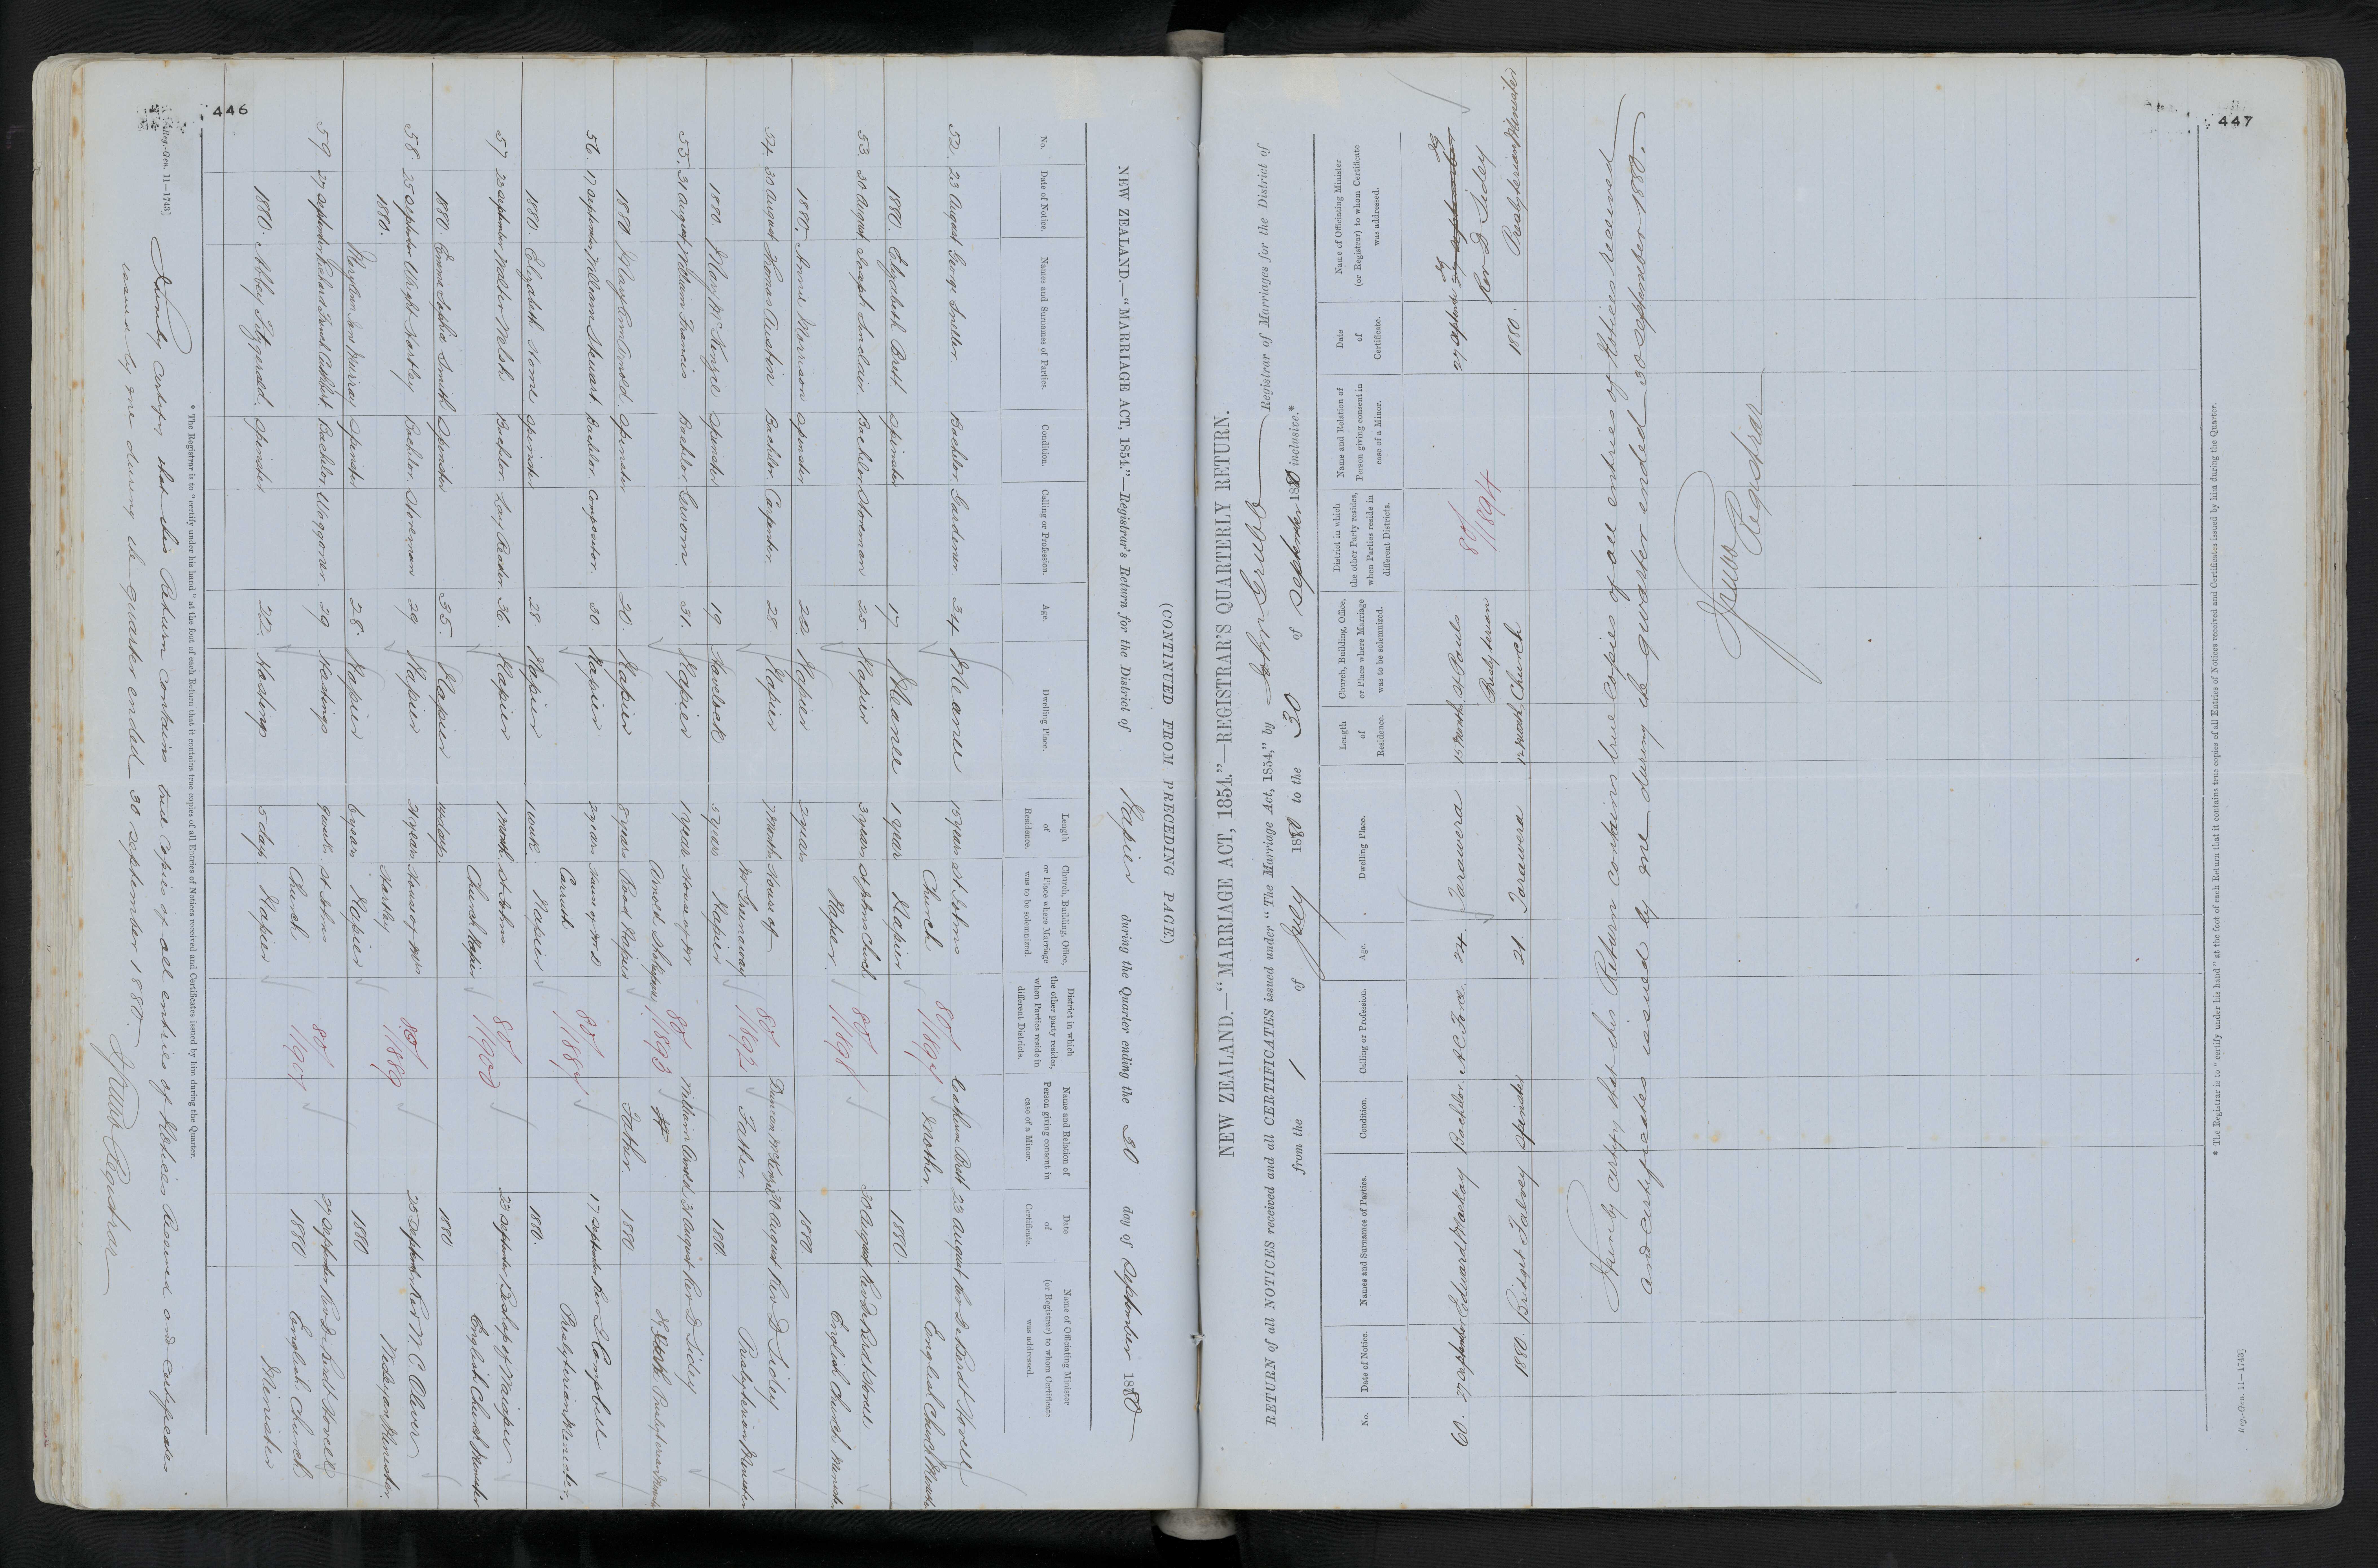 446
(CONTINUED FROM PRECEDING PAGE.)
NEW ZEALAND.—"MARRIAGE ACT, 1854."—Registrar's Return for the District of Napier during the Quarter ending the 30 day of September 1880
No. Date of Notice. Names and Surnames of Parties. Condition. Calling or Profession. Age. Dwelling Place. Length of Residence. Church, Building, Office, or Place where Marriage was to be solemnized. District in which the other party resides, when Parties reside in different Districts. Name and Relation of Person giving consent in case of a Minor. Date of Certificate. Name of Officiating Minister (or Registrar) to whom Certificate was addressed.
52. 23 August George Bachelor Gardener 34 Meanee 15 years St Johns 80/1897 Brett 23 August Rev De Berdt Hovell
1880. Elizabeth Brett Spinster 17 Meanee 1 year Church Napier Mother 1880. English Church
53. 30 August Joseph Sinclair Bachelor Storeman 25 Napier 3 years St Johns Church 80/1898 30 August Hovell
1880. Annie Morrison Spinster 22 Napier 2 years Napier. 1880. English Church Minister
54. 30 August Thomas Austin Bachelor Carpenter. 28. Napier 7 Months House of 80/1892 Duncan McKenzie 30 August Rev D Sidey
1880. Mary McKenzie Spinster 19 Havelock 5 years Mr Greenaway Napier Father. 1880. Presbyterian Minister
55. 31 August William Francis Bachelor Groom. 31. Napier 1 year House of Mr 80/1893 William Arnold 31 August Rev D Sidey
1880 Mary Ann Arnold Spinster 20. Napier 8 years Arnold Road Napier Father. 1880. Presbyterian
56. 17 September William Stewart Bachelor. Compositor. 30. Napier 2 years House of Mr D 80/1887 17 September Rev Campbell
1880. Elizabeth Horne Spinster 28. Napier 1 week Napier 1880. Presbyterian Minister.
57 23 September Walter Welsh Bachelor. Lay Reader 36. Napier 1 Month. St Johns 80/1900 23 September Bishop of Waiapu
1880. Emma Sophia Smith Spinster 35. Napier days Church Napier 1880 English Church Minister
58. 25 September Wright Hartley Bachelor. Storeman 29 Napier years House of Mrs 80/1889 25 September Rev W. C. Oliver
1880. Murray Spinster 28. Napier 6 years Hartley Napier 1880 Wesleyan Minister.
59 27 September Bachelor Waggoner. 29 Hastings 9 weeks. St Johns 80/1901 27 September Rev De Berdt Hovell
1880. Abbey Fitzgerald. Spinster 22. Hastings 5 days Church Napier 1880 English Church Minister
* The Registrar is to "certify under his hand" at the foot of each Return that it contains true copies of all Entries of Notices received and Certificates issued by him during the Quarter.
[Reg.-Gen. 11—1743]
I hereby certify that this Return contains true copies of all entries of Notices received and certificates
issued by me during the quarter ended 30 September 1880.
Registrar
447
NEW ZEALAND.—"MARRIAGE ACT, 1854."—REGISTRAR'S QUARTERLY RETURN.
RETURN of all NOTICES received and all CERTIFICATES issued under "The Marriage Act, 1854," by John Grubb Registrar of Marriages for the District of
from the 1 of July 1880 to the 30 of September 1880 inclusive.*
No. Date of Notice. Names and Surnames of Parties. Condition. Calling or Profession. Age. Dwelling Place. Length of Residence. Church, Building, Office, or Place where Marriage was to be solemnized. District in which the other Party resides, when Parties reside in different Districts. Name and Relation of Person giving consent in case of a Minor. Date of Certificate. Name of Officiating Minister (or Registrar) to whom Certificate was addressed.
60. 27 September Edward Mackay Bachelor. A C Force. 24. Tarawera 15 Months. St Pauls 80/1894 27 September
Presbyterian Rev D Sidey
1880. Bridget Falvey Spinster 21. Tarawera 12 Months Church 1880. Presbyterian Minister
I hereby certify that this Return contains true copies of all entries of Notices received
and certificates issued by me during the quarter ended 30 September 1880.
Registrar
* The Registrar is to "certify under his hand" at the foot of each Return that it contains true copies of all Entries of Notices received and Certificates issued by him during the Quarter.
Reg.-Gen. 11—1743]